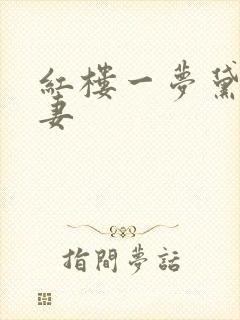 紅樓一夢黛
妻
指間夢話